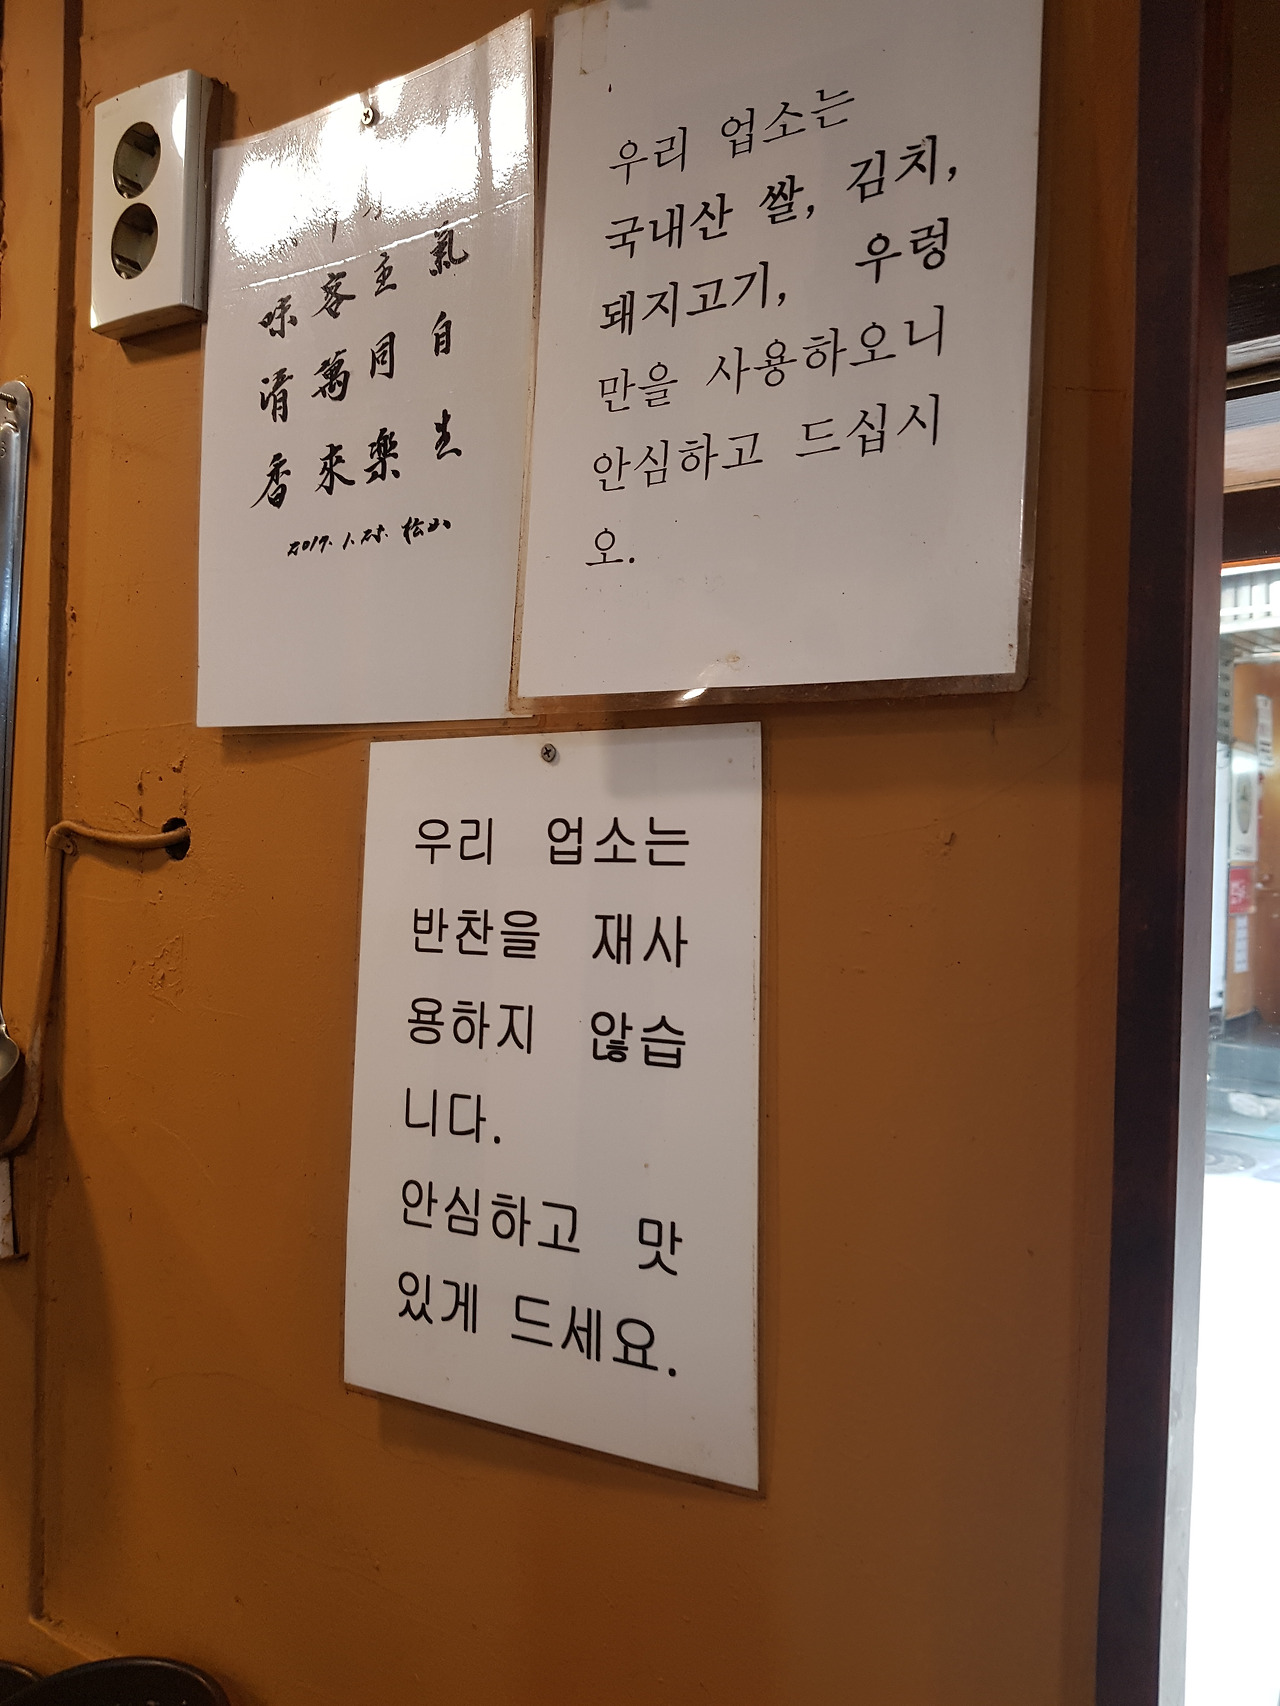 氣 主 客 味
自 同 萬 清
生 樂 來 香
2019.1.25. 松山
우리 업소는
국내산 쌀, 김치,
돼지고기, 우렁
만을 사용하오니
안심하고 드십시
오.
우리 업소는
반찬을 재사
용하지 않습
니다.
안심하고 맛
있게 드세요.